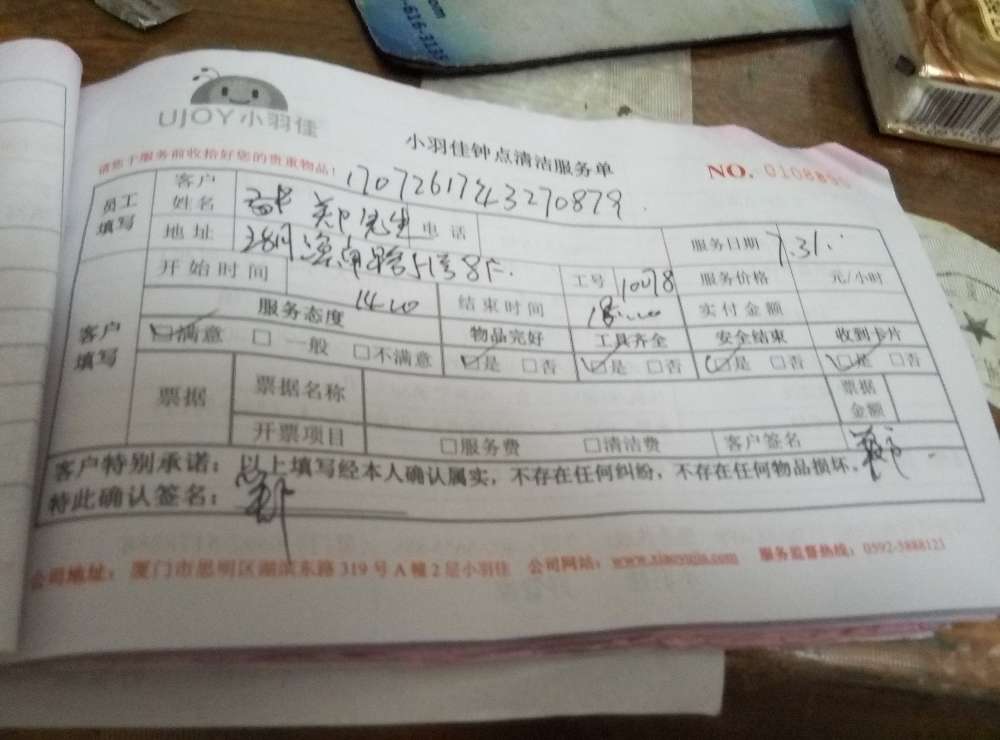 .com
-616-3135
UJOY小羽佳
小羽佳钟点清洁服务单
请您于服务前收拾好您的贵重物品！
NO. 010889
1707261743270879
员工填写 客户姓名 郑先生 电话 服务日期 7.31
地址 51号8F. 工号 10078 服务价格 元/小时
客户填写 开始时间 14:00 结束时间 18:00 实付金额
服务态度 物品完好 工具齐全 安全结束 收到卡片
☑满意 □一般 □不满意 ☑是 □否 ☑是 □否 ☑是 □否 ☑是 □否
票据 票据名称 票据金额
开票项目 □服务费 □清洁费 客户签名
客户特别承诺：以上填写经本人确认属实，不存在任何纠纷，不存在任何物品损坏。
特此确认签名：
公司地址：厦门市思明区湖滨东路319号A幢2层小羽佳 公司网站：www.xiaoyujia.com 服务监督热线：0592-5888123